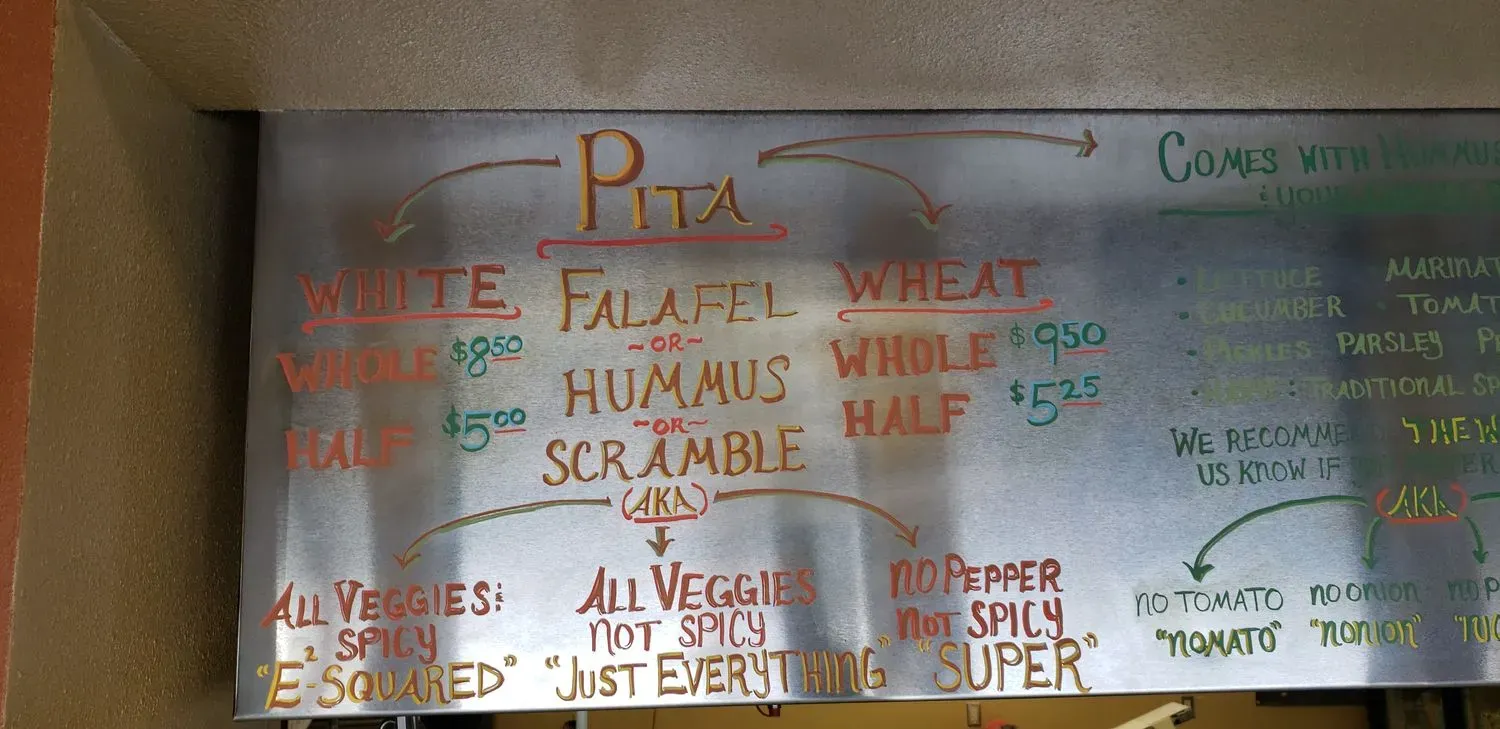 PITA
WHITE
WHOLE $8.50
HALF $5.00
FALAFEL
~OR~
HUMMUS
~OR~
SCRAMBLE
(AKA)
WHEAT
WHOLE $9.50
HALF $5.25
ALL VEGGIES &
SPICY
"E²-SQUARED"
ALL VEGGIES
NOT SPICY
"JUST EVERYTHING"
NO PEPPER
NOT SPICY
"SUPER"
COMES WITH HUMMUS
& YOUR
• LETTUCE • MARINAT
• CUCUMBER • TOMAT
• PICKLES PARSLEY
TRADITIONAL
WE RECOMME
US KNOW IF
(AKA)
NO TOMATO
"NOMATO"
no onion
"nonion"